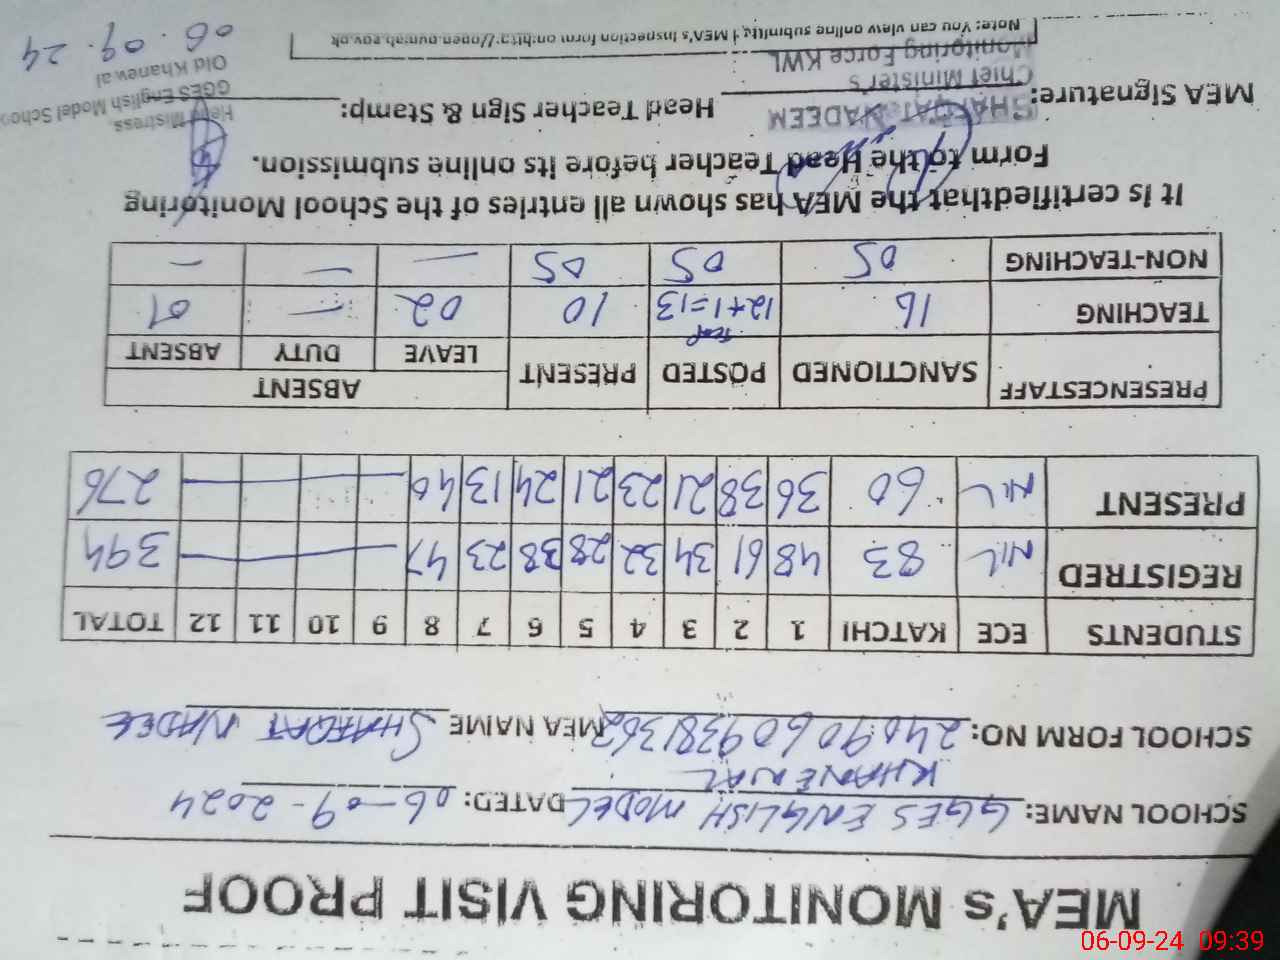 MEA's MONITORING VISIT PROOF
SCHOOL NAME: GGES ENGLISH MODEL DATED: 06-09-2024
KHANEWAL
SCHOOL FORM NO: MEA NAME SHAFQAT NADEE
STUDENTS ECE KATCHI 1 2 3 4 5 6 7 8 9 10 11 12 TOTAL
REGISTRED NIL 83 48 61 34 32 28 38 23 47 394
PRESENT NIL 60 36 38 21 23 21 24 13 40 276
PRESENCESTAFF SANCTIONED POSTED PRESENT ABSENT
LEAVE DUTY ABSENT
TEACHING 16 12+1=13 10 02 — 01
NON-TEACHING 05 05 05 — — —
It is certifiedthat the MEA has shown all entries of the School Monitoring
Form to the Head Teacher before its online submission.
MEA Signature: Head Teacher Sign & Stamp:
SHAFQAT NADEEM
Chief Minister's
Monitoring Force KWL
Head Mistress
GGES English Model School
Old Khanewal
06.09.24
Note: You can view online submitted MEA's inspection form on:
06-09-24 09:39